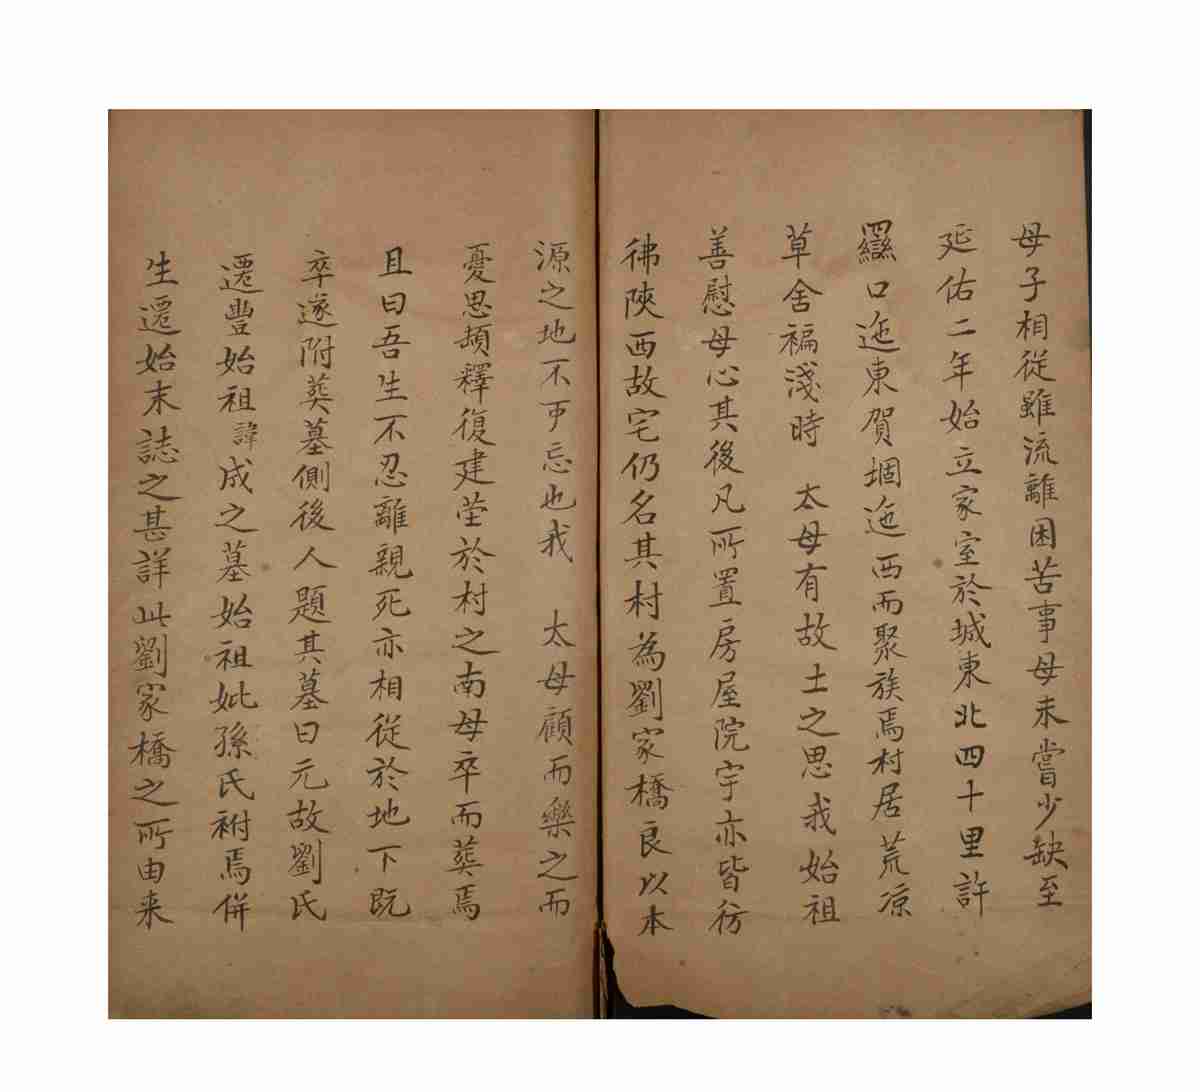 母子相從雖流離困苦事母未嘗少缺至
延佑二年始立家室於城東北四十里許
口迤東賀堌迤西而聚族焉村居荒凉
草舍褊淺時 太母有故土之思我始祖
善慰母心其後凡所置房屋院宇亦皆彷
彿陝西故宅仍名其村為劉家橋良以本
源之地不可忘也我 太母顧而樂之而
憂思頓釋復建塋於村之南母卒而葬焉
且曰吾生不忍離親死亦相從於地下既
卒遂附葬墓側後人題其墓曰元故劉氏
遷豐始祖諱成之墓始祖妣孫氏祔焉併
生遷始末誌之甚詳此劉家橋之所由来